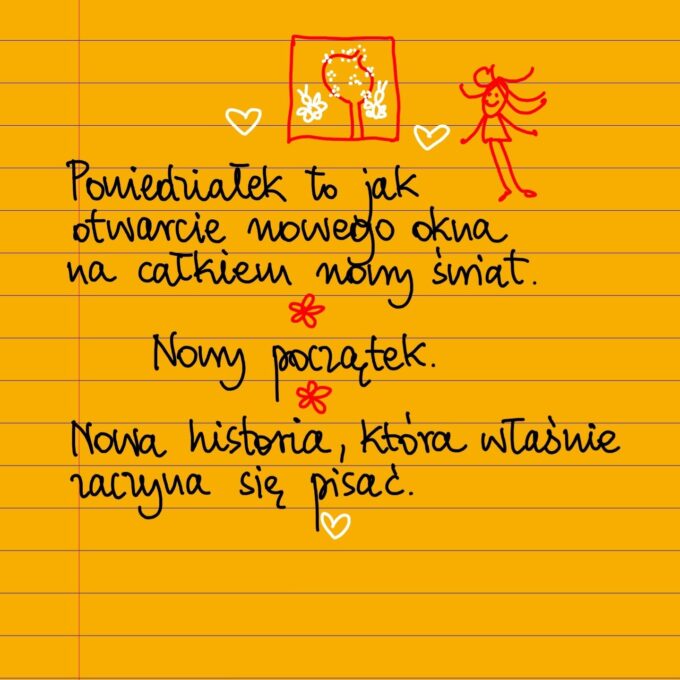 Poniedziałek to jak
otwarcie nowego okna
na całkiem nowy świat.
Nowy początek.
Nowa historia, która właśnie
zaczyna się pisać.